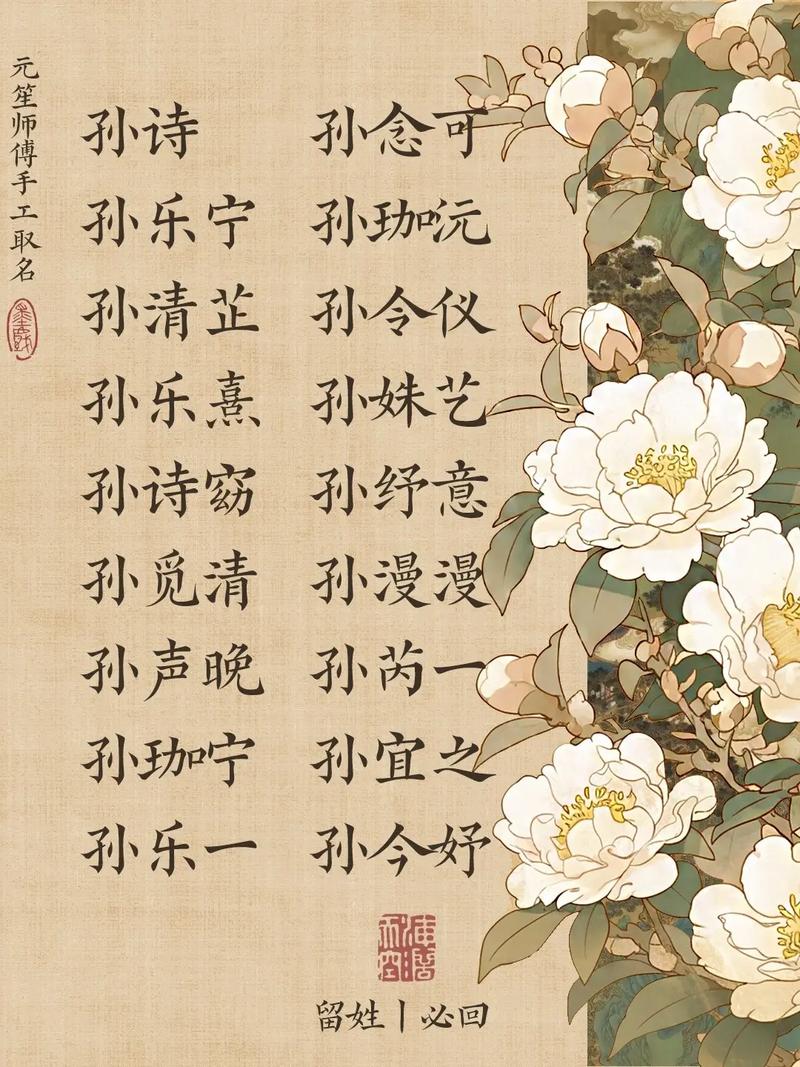 元笙师傅手工取名
孙诗 孙念可
孙乐宁 孙珈沅
孙清芷 孙令仪
孙乐熹 孙姝艺
孙诗窈 孙纾意
孙觅清 孙漫漫
孙声晚 孙芮一
孙珈宁 孙宜之
孙乐一 孙今妤
留姓丨必回